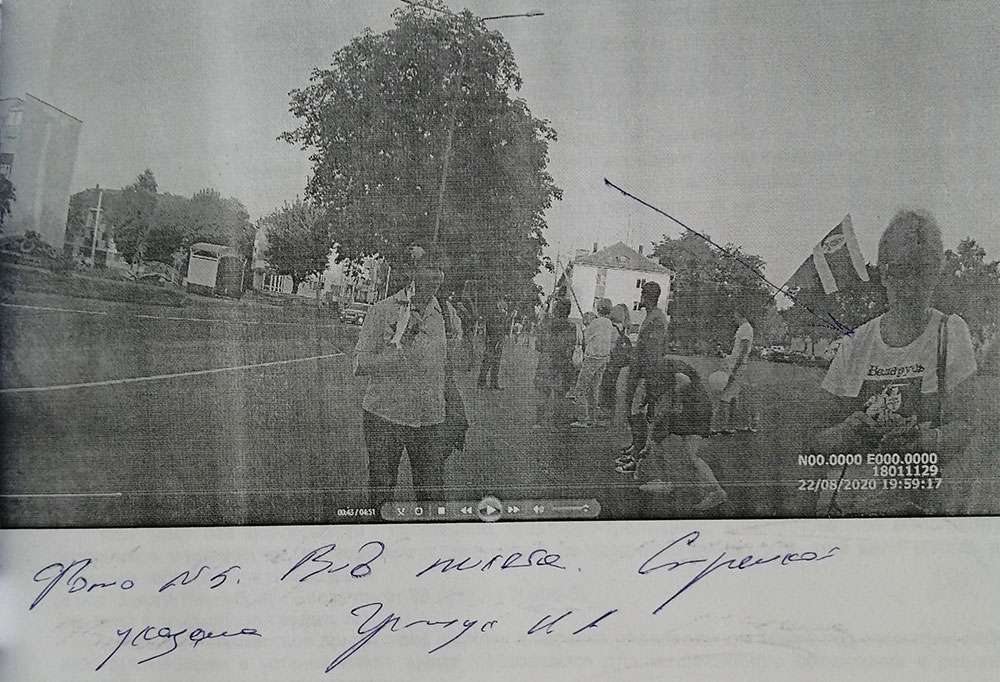 Беларусь
N00.0000 E000.0000
18011129
22/08/2020 19:59:17
00:43 / 04:51
Фото №5. Вид пикета. Стрелкой
указана